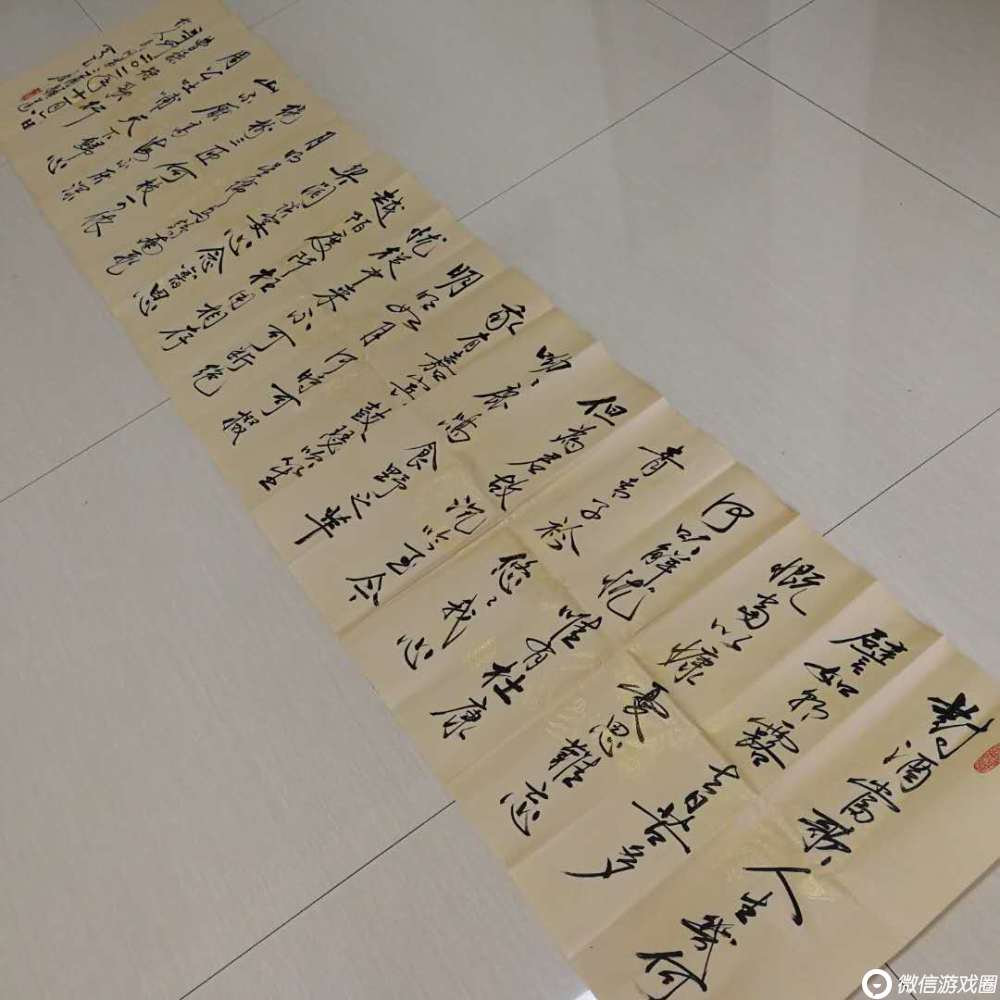 對酒當歌人生幾何
譬如朝露去日苦多
慨當以慷憂思難忘
何以解憂唯有杜康
青青子衿悠々我心
但為君故沉吟至今
呦々鹿鳴食野之苹
我有嘉賓鼓瑟吹笙
明明如月何時可掇
憂從中來不可斷絕
越陌度阡枉用相存
契闊談宴心念舊恩
月明星稀烏鵲南飛
繞樹三匝何枝可依
山不厭高海不厭深
周公吐哺天下歸心
曹操短歌行
微信游戏圈